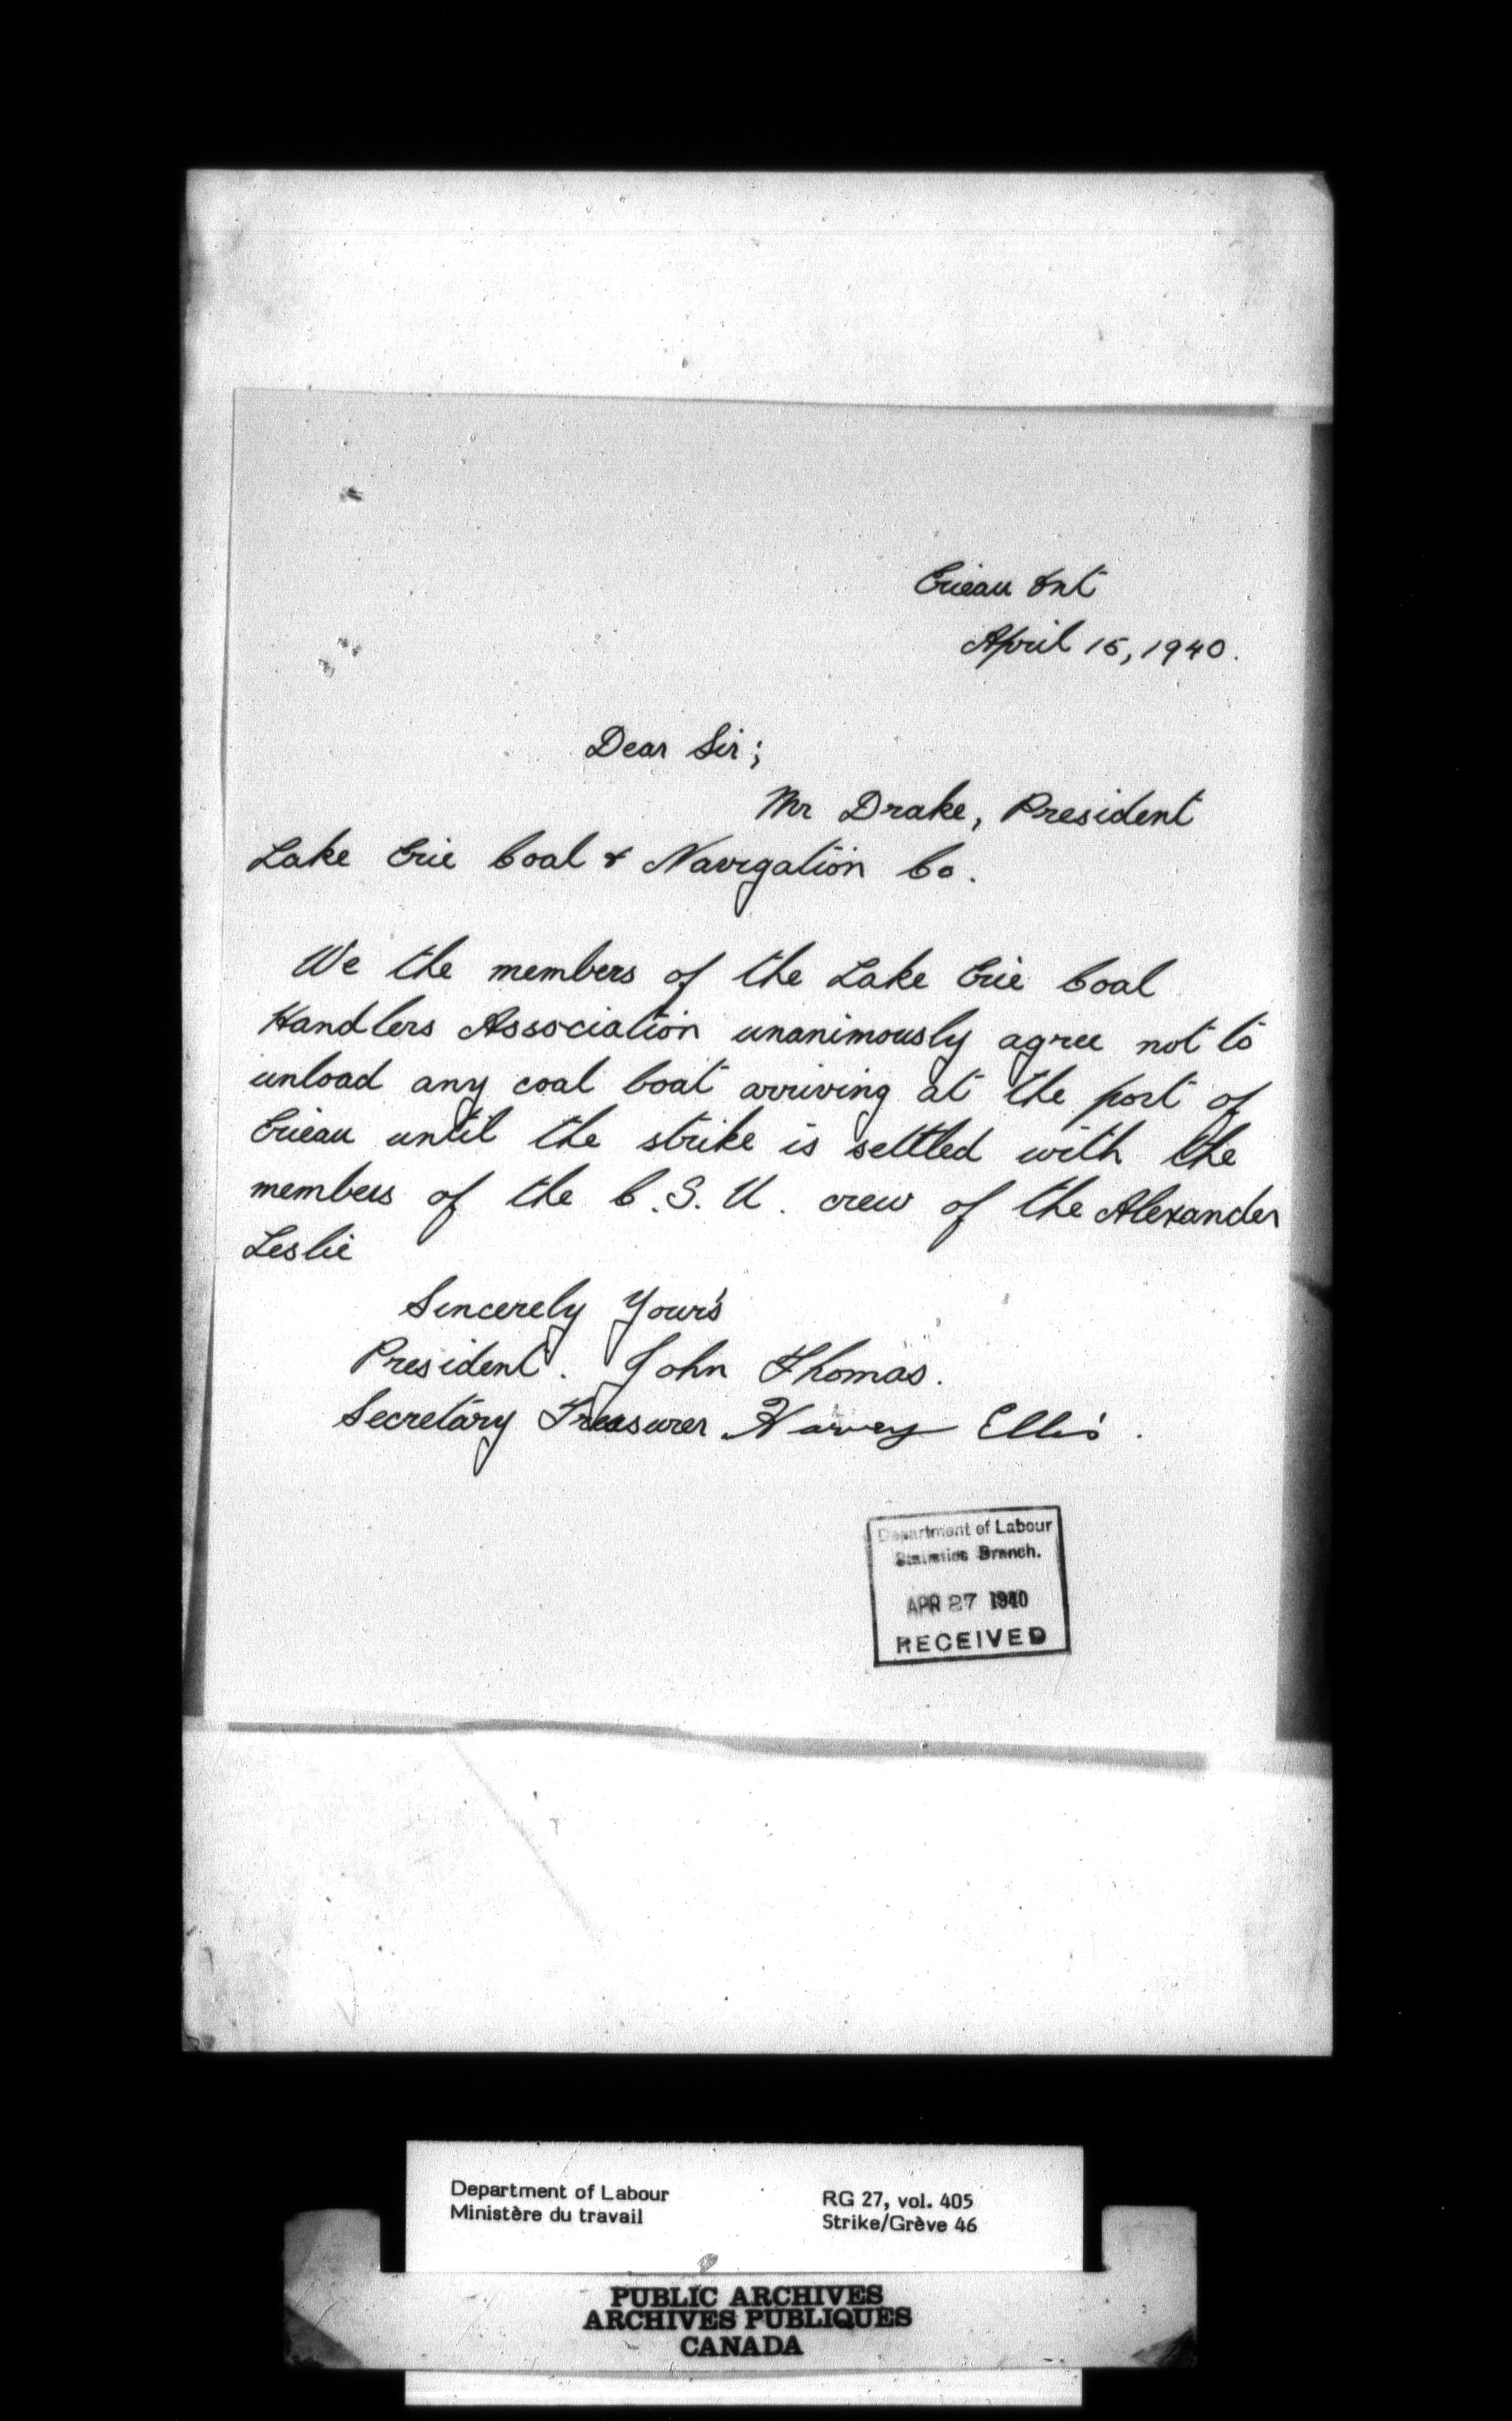 Erieau Ont
April 15, 1940.
Dear Sir;
Mr Drake, President
Lake Erie Coal & Navigation Co.
We the members of the Lake Erie Coal
Handlers Association unanimously agree not to
unload any coal boat arriving at the port of
Erieau until the strike is settled with the
members of the C.S.U. crew of the Alexander
Leslie
Sincerely Your's
President. John Thomas.
Secretary Treasurer Harvey Ellis.
Department of Labour
Statistics Branch.
APR 27 1940
RECEIVED
Department of Labour
Ministère du travail
RG 27, vol. 405
Strike/Grève 46
PUBLIC ARCHIVES
ARCHIVES PUBLIQUES
CANADA